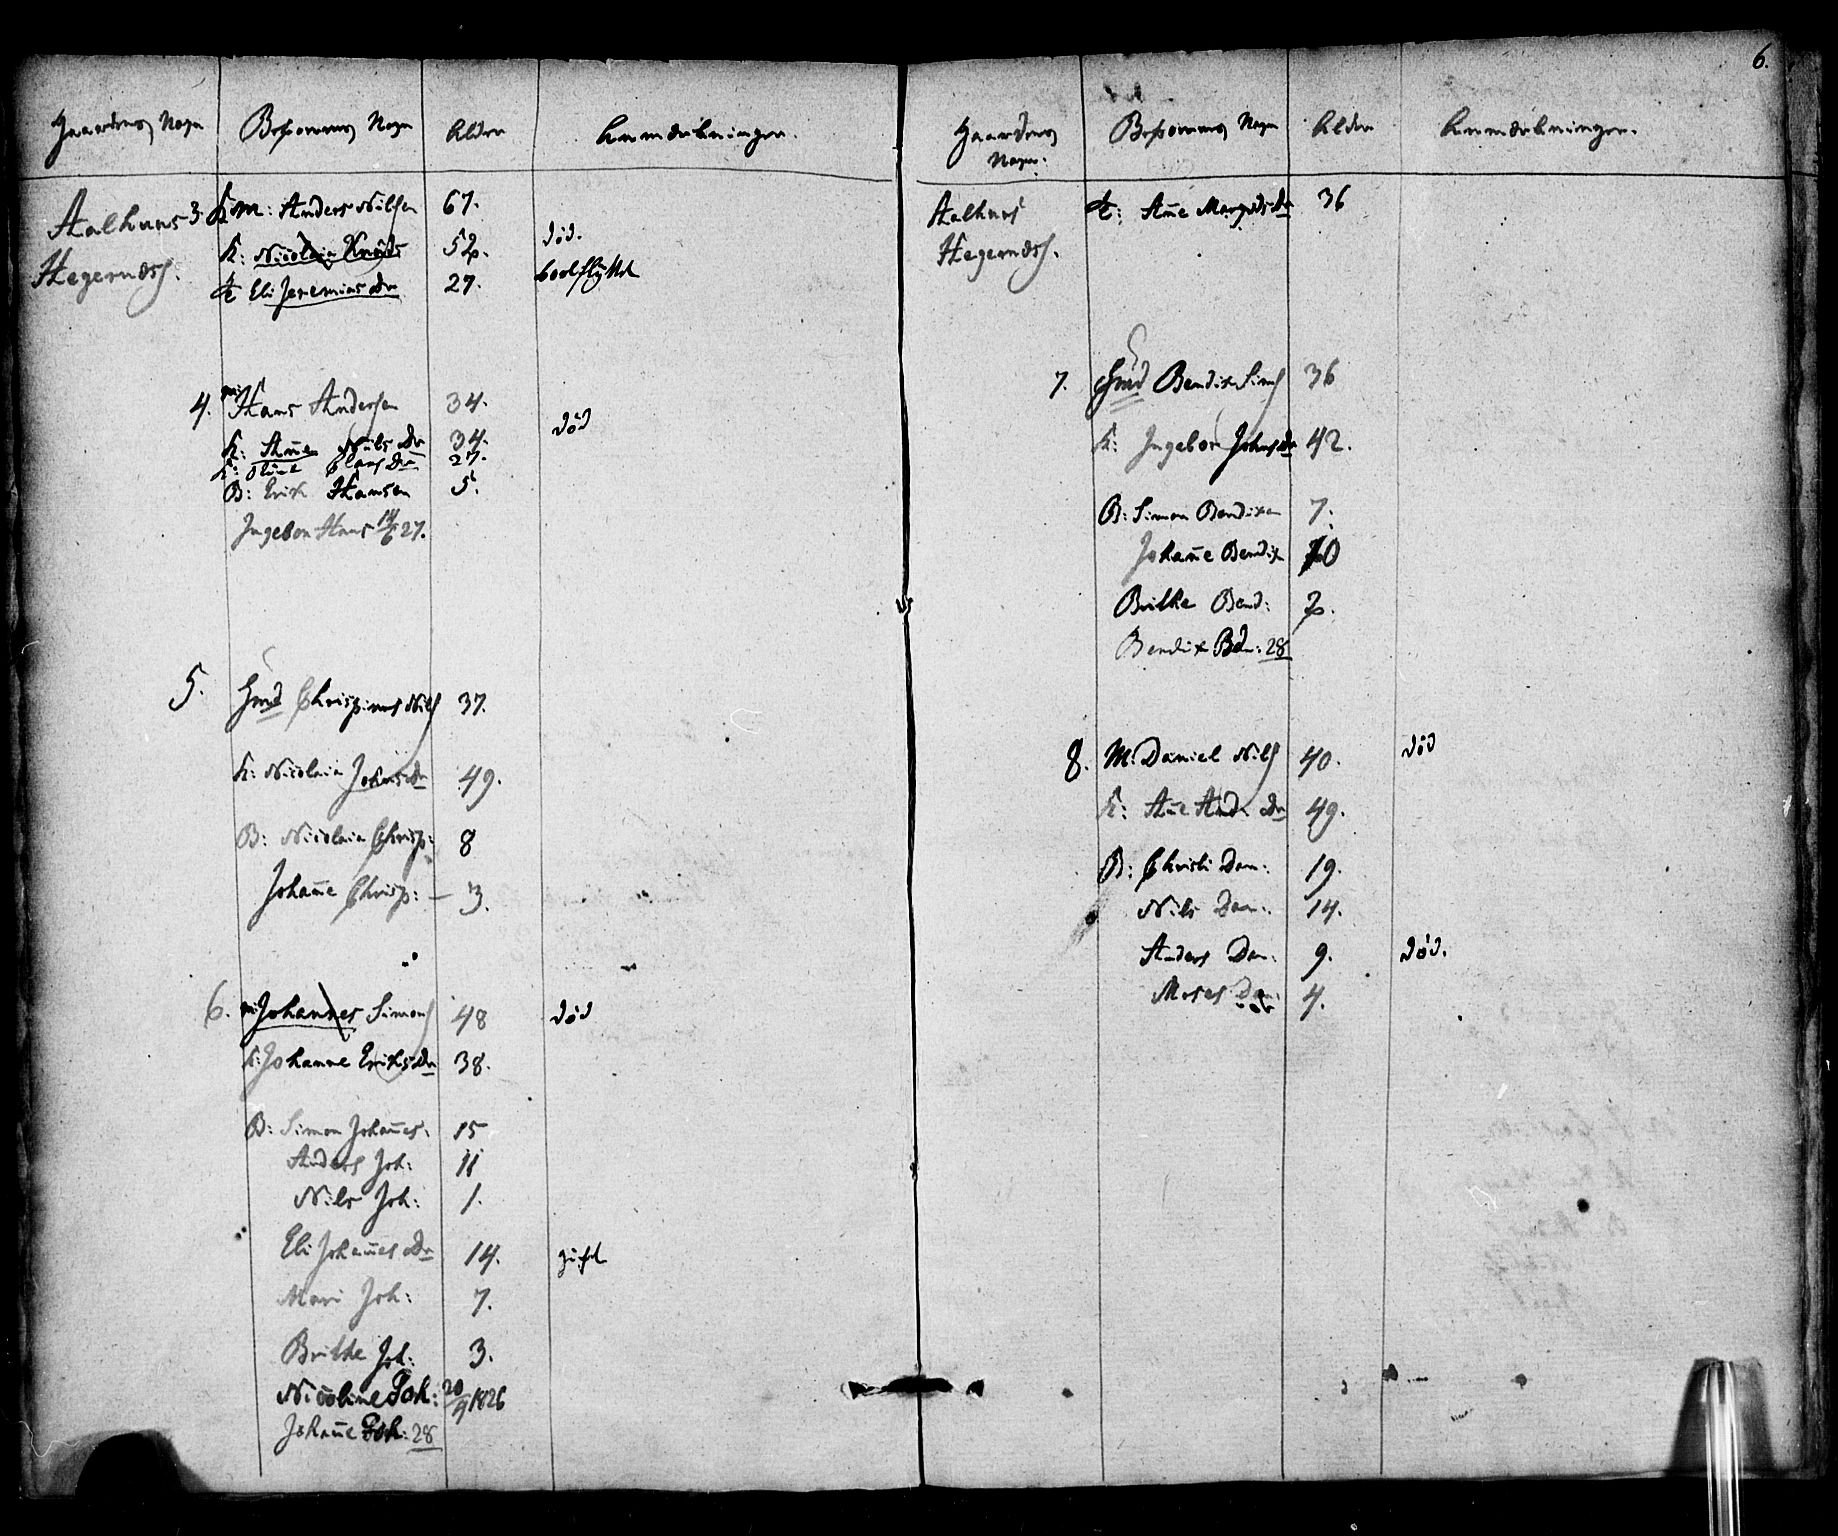 Gaardens Navn Beboernes Navn Alder Anmærkninger.
Aalhuus 3. Km: Anders Nilsen 67.
K: Nicolaia Knuds 52. død.
Hegernæss. Eli Jeremias Dr 27. bortflyttet
4. m: Hans Andersen 34.
K: Añe Nils Dr 34. død
K: Oline Claus Dr 27.
B: Erik Hansen 5.
Ingebor Hans 14/6 27.
5. Gmd Chrispinus Nils 37.
K: Nicolaia Johns Dr 49.
B: Nicolaia Chrisp: 8
Johañe Chrisp: – 3.
6. m: Johannes Simons 48 død
K: Johanne Eriks Dr 38.
B: Simon Johañes: 15
Anders Joh: 11
Nils Joh: 1.
Eli Johañes Dr 14. gift
Mari Joh: 7.
Brithe Joh: 3.
Nicoline Joh: 20/4 1826
Johañe Joh: 28
6.
Gaardens Navn: Beboernes Navn Alder Anmærkninger.
Aalhuus Añe Dr 36
Hegernæss.
7. Gmd Bendix Sims 36
K: Ingebor Johns Dr 42.
B: Simon Bendixen 7.
Johañe Bendix 10
Brithe Bend: 2.
Bendix Bdn: 28
8. M: Daniel Nils 40. død
K: Añe And: Dr 49.
B: Christi Dan: 19.
Nils Dan: 14.
Anders Dan: 9. død.
Moses Dan: 4.